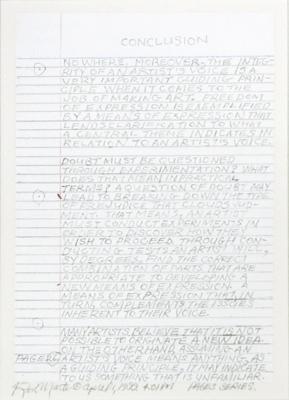 CONCLUSION
NOWHERE, MOREOVER, THE INTEG-
RITY OF AN ARTIST'S VOICE IS A
VERY IMPORTANT GUIDING PRIN-
CIPLE WHEN IT COMES TO THE
JOB OF MAKING ART. FREEDOM
OF EXPRESSION IS EXEMPLIFIED
BY A MEANS OF EXPRESSION THAT
LENDS CLARIFY AS TO WHAT
A CENTRAL THEME INDICATES IN
RELATION TO AN ARTIST'S VOICE.
DOUBT MUST BE QUESTIONED
THROUGH EXPERIMENTATION? WHAT
DOES THAT MEAN IN PRACTICAL
TERMS? A QUESTION OF DOUBT MAY
LEAD TO BREAKING DOWN THE TYPE
OF PREJUDICE THAT CLOUDS JUDG-
MENT. THAT MEANS, AN ARTIST
MUST CONDUCT EXPERIMENTS IN
ORDER TO DISCOVER HOW THEY
WISH TO PROCEED THROUGH CON-
AN ARTIST WILL,
BY DEGREES, FIND THE CORRECT
COMBINATION OF PARTS THAT ARE
APPROPRIATE TO DEFINING A
NEW MEANS OF EXPRESSION. A
MEANS OF EXPRESSION THAT IN
TURN COMPLEMENTS THE ISSUES
INHERENT TO THEIR VOICE.
MANY ARTISTS BELIEVE THAT IT IS NOT
POSSIBLE TO ORIGINATE A NEW IDEA
ON THE OTHER HAND, ASSUMING AN
PAGE ARTIST'S VOICE MEANS ANYTHING, AS
A GUIDING PRINCIPLE, IT MAY INDICATE
TO US SOMETHING THAT IS UNFAMILIAR.
PAGES SERIES.